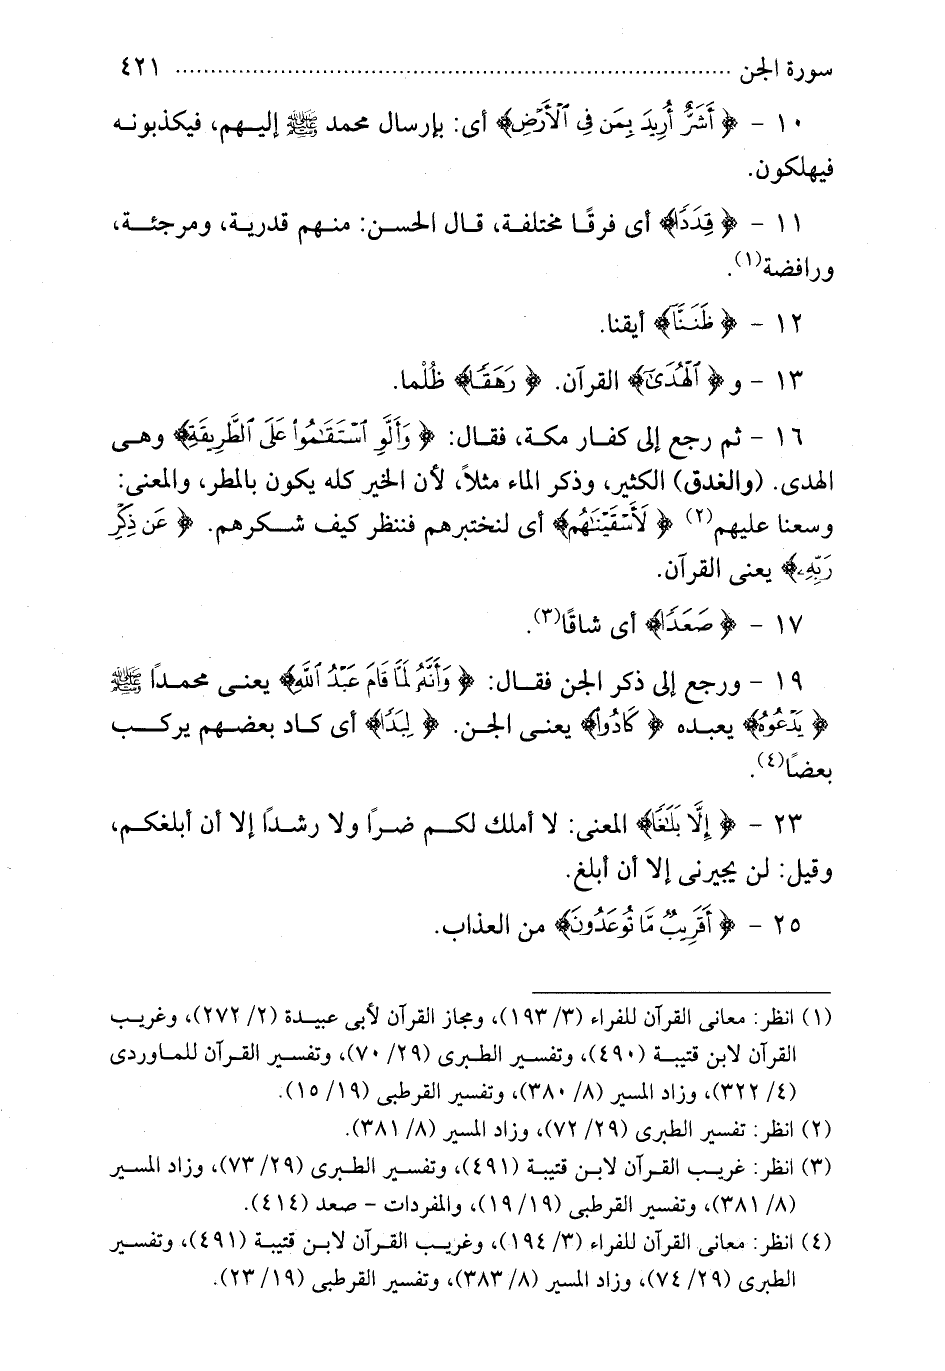 سورة الجن ............................................................ ٤٢١
١٠ - ﴿ أَشَرٌّ أُرِيدَ بِمَن فِى ٱلْأَرْضِ﴾ أى: بإرسال محمد ﷺ إليـهم، فيكذبونـه
فيهلكون.
١١ - ﴿ قِدَدًا﴾ أى فرقًا مختلفـة، قـال الحسـن: منـهم قدريـة، ومرجئـة،
ورافضة(١).
١٢ - ﴿ ظَنَنَّآ﴾ أيقنا.
١٣ - و﴿ ٱلْهُدَىٰٓ﴾ القرآن. ﴿ رَهَقًا﴾ ظُلْما.
١٦ - ثم رجع إلى كفـار مكـة، فقـال: ﴿ وَأَلَّوِ ٱسْتَقَـٰمُوا۟ عَلَى ٱلطَّرِيقَةِ﴾ وهـى
الهدى. (والغدق) الكثير، وذكر الماء مثلاً، لأن الخير كله يكون بالمطر، والمعنى:
وسعنا عليهم(٢) ﴿ لَأَسْقَيْنَـٰهُم﴾ أى لنختبرهم فننظر كيف شـكرهم. ﴿ عَن ذِكْرِ
رَبِّهِۦ﴾ يعنى القرآن.
١٧ - ﴿ صَعَدًا﴾ أى شاقًا(٣).
١٩ - ورجع إلى ذكر الجن فقـال: ﴿ وَأَنَّهُۥ لَمَّا قَامَ عَبْدُ ٱللَّهِ﴾ يعنـى محمـدًا ﷺ
﴿ يَدْعُوهُ﴾ يعبـده ﴿ كَادُوا۟﴾ يعنـى الجـن. ﴿ لِبَدًا﴾ أى كـاد بعضـهم يركـب
بعضًا(٤).
٢٣ - ﴿ إِلَّا بَلَـٰغًا﴾ المعنى: لا أملك لكـم ضـرًا ولا رشـدًا إلا أن أبلغكـم،
وقيل: لن يجيرنى إلا أن أبلغ.
٢٥ - ﴿ أَقَرِيبٌ مَّا تُوعَدُونَ﴾ من العذاب.
(١) انظر: معانى القرآن للفراء (٣/ ١٩٣)، ومجاز القرآن لأبى عبيـدة (٢/ ٢٧٢)، وغريـب
القرآن لابن قتيبـة (٤٩٠)، وتفسـير الطـبرى (٢٩/ ٧٠)، وتفسـير القـرآن للمـاوردى
(٤/ ٣٢٢)، وزاد المسير (٨/ ٣٨٠)، وتفسير القرطبى (١٩/ ١٥).
(٢) انظر: تفسير الطبرى (٢٩/ ٧٢)، وزاد المسير (٨/ ٣٨١).
(٣) انظر: غريـب القـرآن لابـن قتيبـة (٤٩١)، وتفسـير الطـبرى (٢٩/ ٧٣)، وزاد المسـير
(٨/ ٣٨١)، وتفسير القرطبى (١٩/ ١٩)، والمفردات - صعد (٤١٤).
(٤) انظر: معانى القرآن للفراء (٣/ ١٩٤)، وغريـب القـرآن لابـن قتيبـة (٤٩١)، وتفسـير
الطبرى (٢٩/ ٧٤)، وزاد المسير (٨/ ٣٨٣)، وتفسير القرطبى (١٩/ ٢٣).